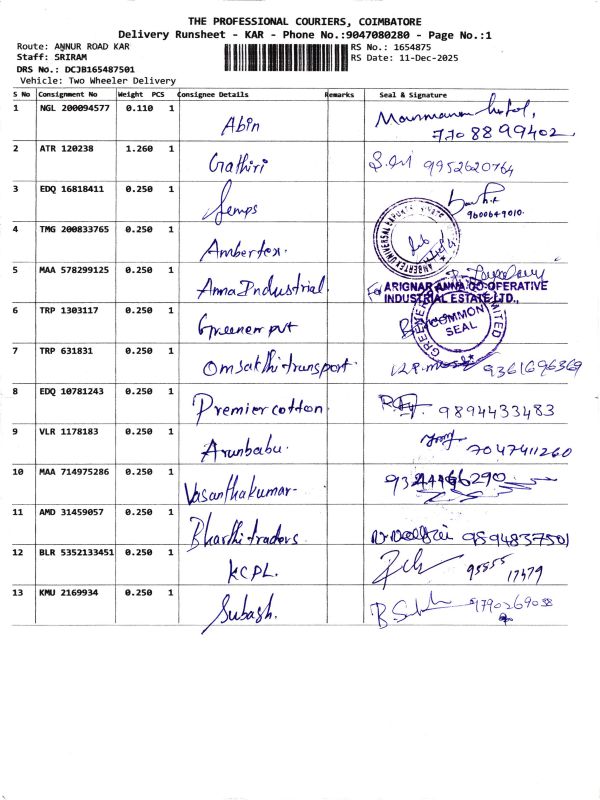 THE PROFESSIONAL COURIERS, COIMBATORE
Delivery Runsheet - KAR - Phone No.:9047080280 - Page No.:1
Route: ANNUR ROAD KAR RS No.: 1654875
Staff: SRIRAM RS Date: 11-Dec-2025
DRS No.: DCJB165487501
Vehicle: Two Wheeler Delivery
S No Consignment No Weight PCS Consignee Details Remarks Seal & Signature
1 NGL 200094577 0.110 1 Abin
7708899402
2 ATR 120238 1.260 1 Gathiri 9952620764
3 EDQ 16818411 0.250 1
4 TMG 200833765 0.250 1 Ambertex.
5 MAA 578299125 0.250 1 Anna Industrial. For ARIGNAR ANNA CO-OPERATIVE
INDUSTRIAL ESTATE LTD.,
6 TRP 1303117 0.250 1 Greenem pvt COMMON
SEAL
7 TRP 631831 0.250 1 Omsakthi transport 9361696369
8 EDQ 10781243 0.250 1 Premier cotton 9894433483
9 VLR 1178183 0.250 1 Arunbabu. 7047411260
10 MAA 714975286 0.250 1 Vasanthakumar-
11 AMD 31459057 0.250 1 Bharthi traders 9594837501
12 BLR 5352133451 0.250 1 KCPL. 95555
17579
13 KMU 2169934 0.250 1 Subash. 9790269058